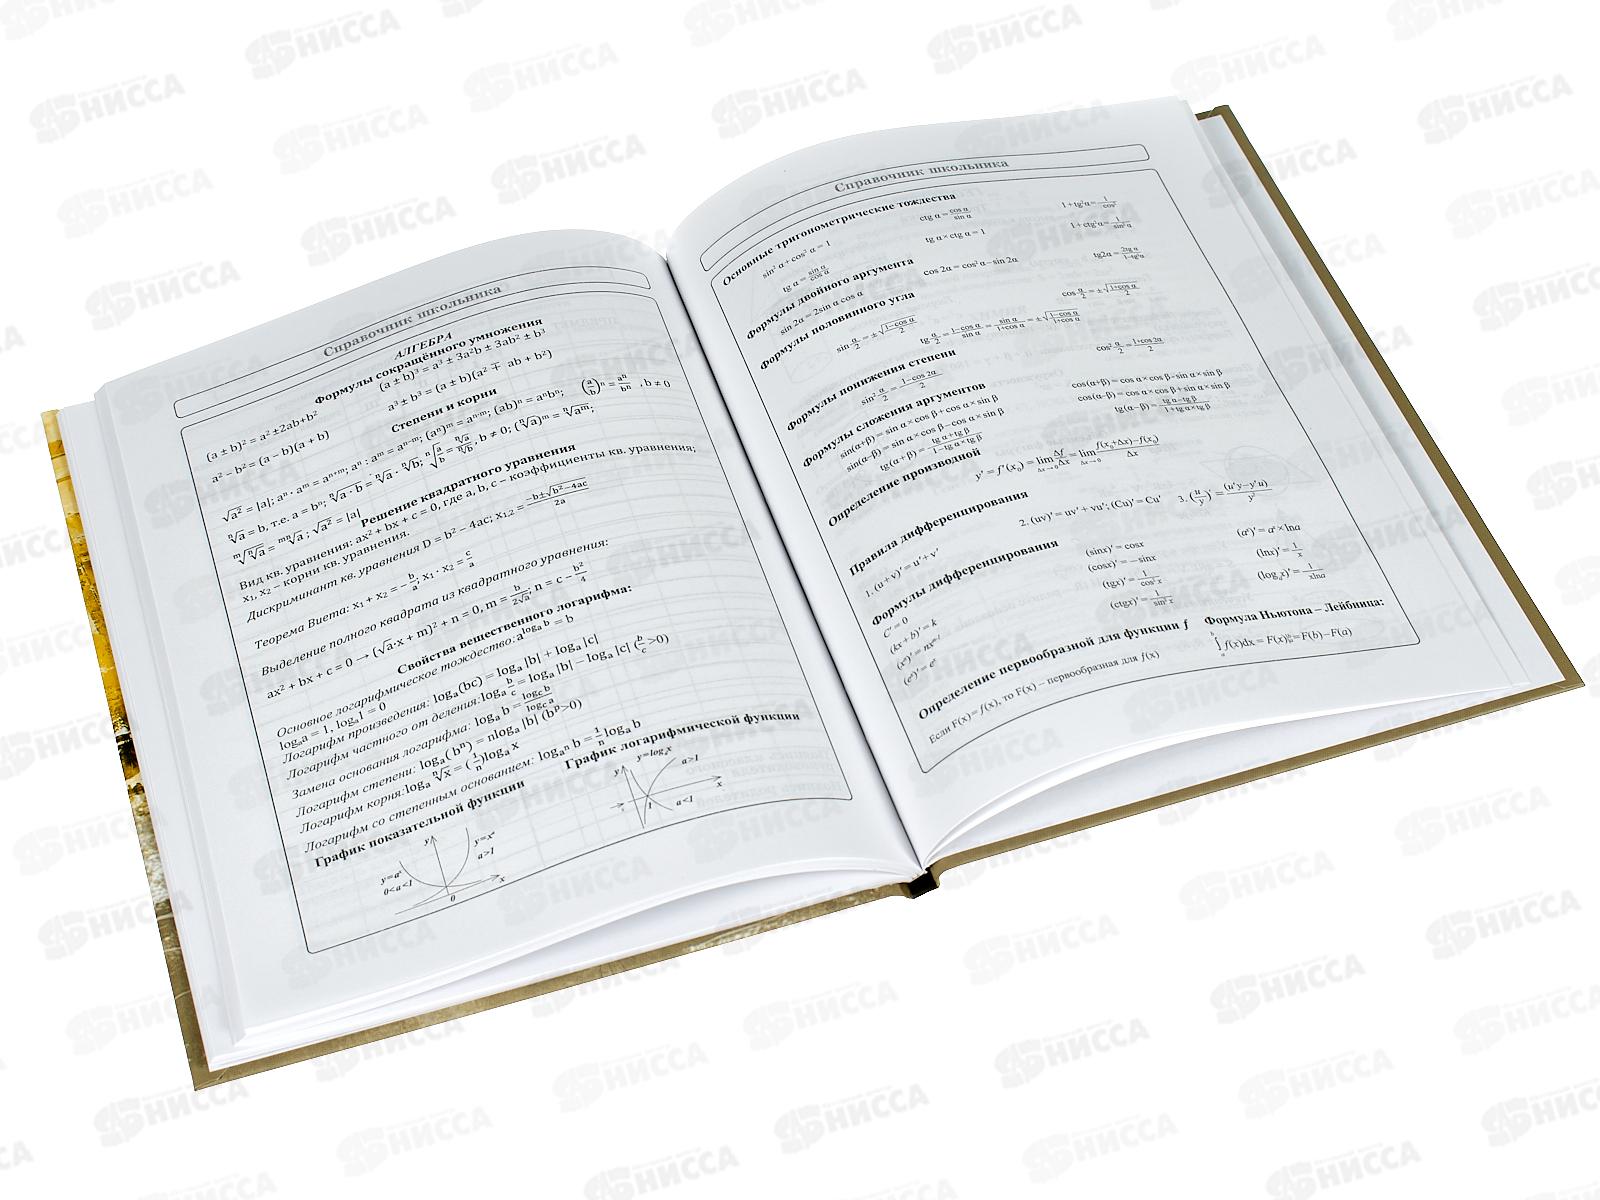 Справочник школьника
АЛГЕБРА
Формулы сокращённого умножения
(a ± b)² = a² ±2ab+b² (a ± b)³ = a³ ± 3a²b ± 3ab² ± b³
a² − b² = (a − b)(a + b) a³ ± b³ = (a ± b)(a² ∓ ab + b²)
Степени и корни
√a² = |a|; aⁿ · aᵐ = aⁿ⁺ᵐ; aⁿ : aᵐ = aⁿ⁻ᵐ; (aⁿ)ᵐ = aⁿ·ᵐ; (ab)ⁿ = aⁿbⁿ; (a/b)ⁿ = aⁿ/bⁿ , b ≠ 0
ⁿ√a = b, т.е. a = bⁿ; ⁿ√a · b = ⁿ√a · ⁿ√b; ⁿ√a/b = ⁿ√a/ⁿ√b, b ≠ 0; (ⁿ√a)ᵐ = ⁿ√aᵐ;
ᵐ√ⁿ√a = ᵐⁿ√a; √a² = |a|
Решение квадратного уравнения
Вид кв. уравнения: ax² + bx + c = 0, где a, b, c – коэффициенты кв. уравнения;
x₁, x₂ – корни кв. уравнения.
Дискриминант кв. уравнения D = b² − 4ac; x₁,₂ = −b±√b²−4ac/2a
Теорема Виета: x₁ + x₂ = − b/a; x₁ · x₂ = c/a
Выделение полного квадрата из квадратного уравнения:
ax² + bx + c = 0 → (√a·x + m)² + n = 0, m = b/2√a; n = c − b²/4
Свойства вещественного логарифма:
Основное логарифмическое тождество: a^logₐ b = b
logₐa = 1, logₐ1 = 0
Логарифм произведения: logₐ(bc) = logₐ |b| + logₐ |c|
Логарифм частного от деления: logₐ b/c = logₐ |b| − logₐ |c| (b/c >0)
Замена основания логарифма: logₐ b = log꜀ b/log꜀ a
Логарифм степени: logₐ(bⁿ) = nlogₐ |b| (bᵖ>0)
Логарифм корня: logₐ ⁿ√x = (1/n)logₐ x
Логарифм со степенным основанием: logₐⁿ b = 1/n logₐ b
График показательной функции График логарифмической функции
y y=xª a>1 y=aˣ 0<a<1 0 x
y y=logₐx a>1 1 a<1 x
Справочник школьника
Основные тригонометрические тождества
sin² α + cos² α = 1 ctg α = cos α/sin α 1 + tg²α = 1/cos²
tg α = sin α/cos α tg α × ctg α = 1 1 + ctg²α = 1/sin² α
Формулы двойного аргумента
sin 2α = 2sin α cos α cos 2α = cos² α − sin 2α tg2α = 2tg α/1−tg²α
Формулы половинного угла
sin α/2 = ± √1−cos α/2 tg α/2 = 1−cos α/sin α = sin α/1+cos α = ± √1−cos α/1+cos α cos α/2 = ± √1+cos α/2
Формулы понижения степени
sin² α/2 = 1−cos 2α/2 cos² α/2 = 1+cos 2α/2
Формулы сложения аргументов
sin(α+β) = sin α × cos β + cos α × sin β cos(α+β) = cos α × cos β − sin α × sin β
sin(α−β) = sin α × cos β − cos α × sin β cos(α−β) = cos α × cos β + sin α × sin β
tg(α+β) = tg α+tg β/1−tg α×tg β tg(α−β) = tg α−tg β/1+tg α×tg β
Определение производной
y′ = f′(x₀) = lim Δf/Δx = lim f(x₀+Δx)−f(x₀)/Δx
Δx→0 Δx→0
Правила дифференцирования
1. (u + v)′ = u′ + v′ 2. (uv)′ = uv′ + vu′; (Cu)′ = Cu′ 3. (u/v)′ = (u′y−y′u)/y²
Формулы дифференцирования
C′ = 0 (sinx)′ = cosx (aˣ)′ = aˣ × lna
(kx + b)′ = k (cosx)′ = − sinx (lnx)′ = 1/x
(xⁿ)′ = nxⁿ⁻¹ (tgx)′ = 1/cos² x (logₐx)′ = 1/xlna
(eˣ)′ = eˣ (ctgx)′ = 1/sin² x
Определение первообразной для функции f Формула Ньютона – Лейбница:
Если F(x) = f(x), то F(x) – первообразная для f(x) ∫ₐᵇ f(x)dx = F(x)|ₐᵇ = F(b)−F(a)
НИССА